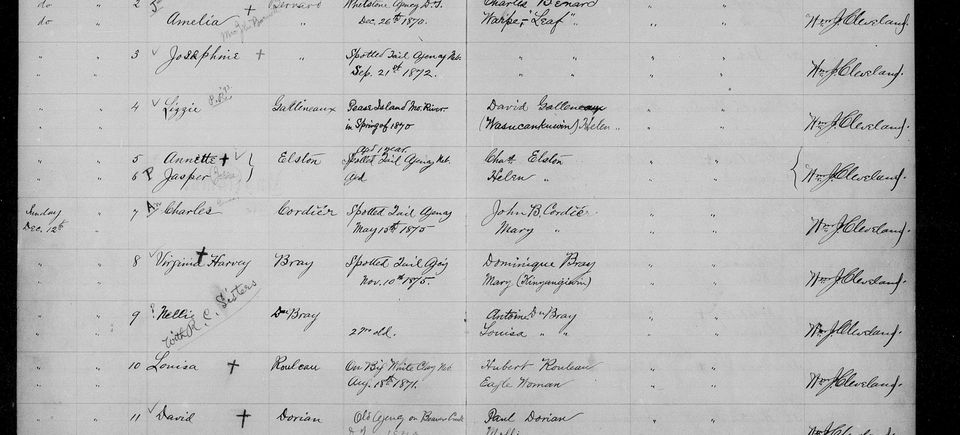 do " 2 Bernard Whetstone Agency D.T. Charles Benard
Amelia + Dec. 26th 1870. Wahpe, "Leaf" " Wm J. Cleveland.
" " 3 Josephine + " Spotted Tail Agency Neb. " " " "
Sep. 21st 1872. " " " " Wm J. Cleveland.
" " 4 Lizzie Gallineaux Pease Island Mo. River David Gallineaux " "
in Spring of 1870 (Wasucankuwin) Helen " " " Wm J. Cleveland.
aged 1 year
" " 5 Annette + Elston Spotted Tail Agency Neb. Chas. Elston " "
" " 6 Jasper aged Helen " " " Wm J. Cleveland.
" 7 Charles Cordier Spotted Tail Agency John B. Cordier " "
Sunday
Dec. 12th " May 15th 1875 Mary " " " Wm J. Cleveland.
" " 8 Virginia + Harvey Bray Spotted Tail Agcy Dominique Bray " "
" " Nov. 10th 1875. Mary (Kinyangiwin) " " Wm J. Cleveland.
" " 9 ? Nellie Du Bray Antoine Du Bray " "
" " with R. C. Sisters 2 mo old. Louisa " " " " Wm J. Cleveland.
" " 10 Louisa + Rouleau On Big White Clay Neb. Hubert Rouleau " "
" " Aug. 18th 1871. Eagle Woman " " Wm J. Cleveland.
" " 11 David + Dorian Old Agency on Beaver Creek Paul Dorian " "